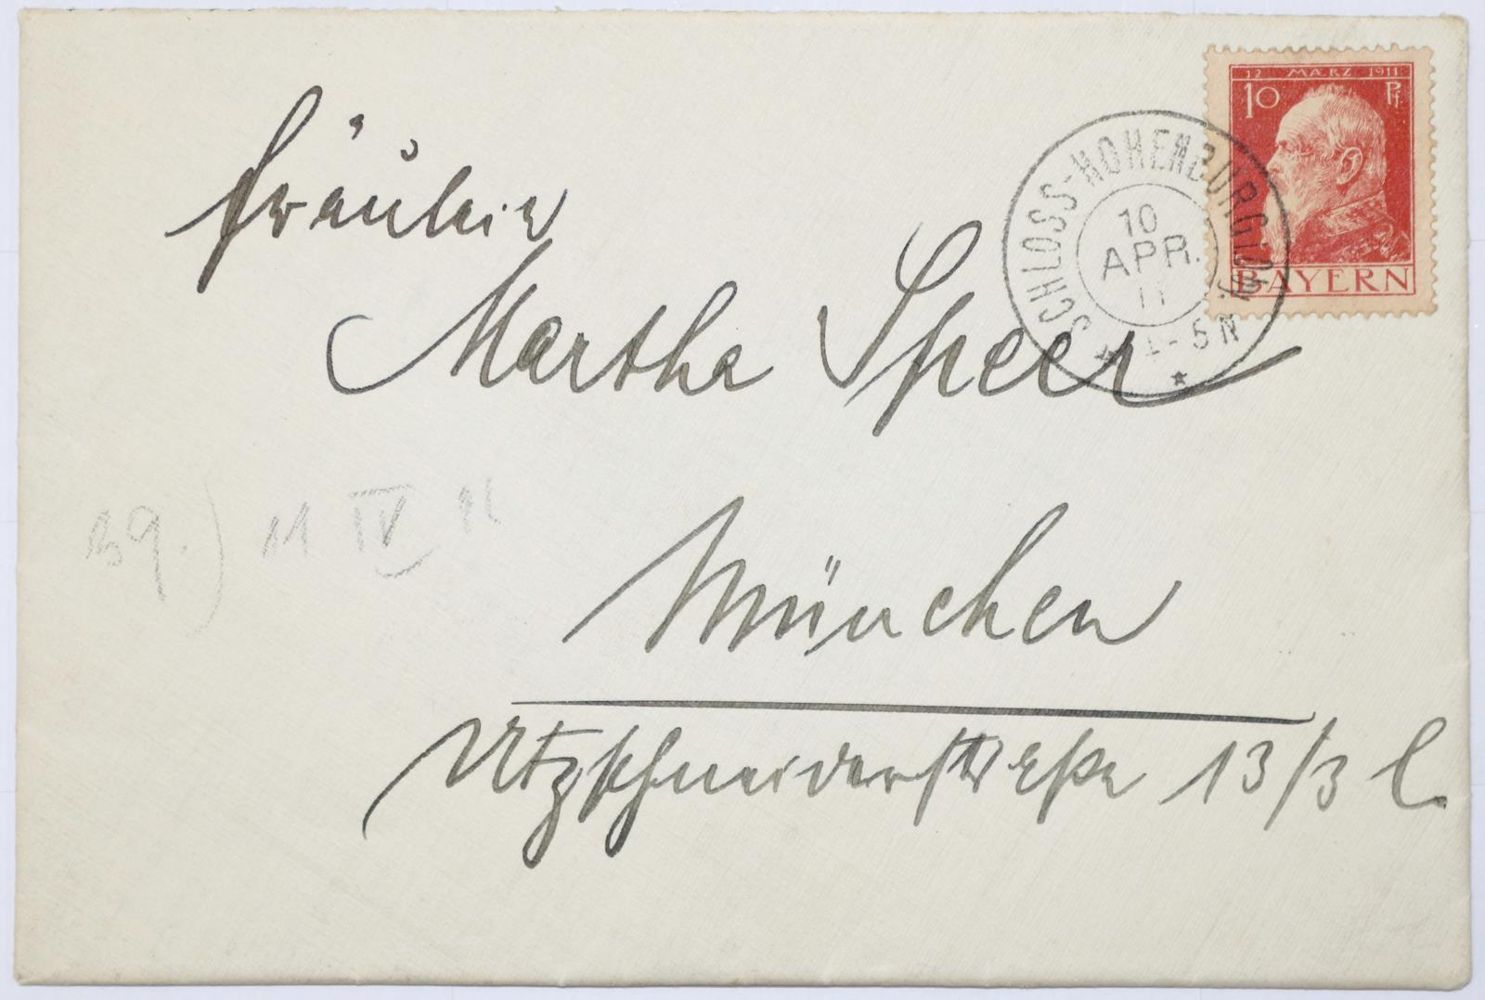 12 MÄRZ 1911
10 Pf.
BAYERN
SCHLOSS-HOHENBURG
10
APR.
11
4-5 N
Fräulein
Martha Speer
39.) 11 IV 11
München
Utzschneiderstraße 13/3 l.